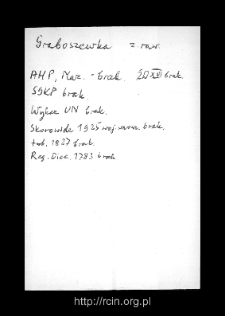 Graboszewka z. raw.
AHP, Maz. - brak. ŹD XVI brak.
SGKP brak.
Wykaz UN brak.
Skorowidz 1925 woj. warsz. brak.
tab. 1827 brak.
Reg. Diec. 1783 brak
http://rcin.org.pl